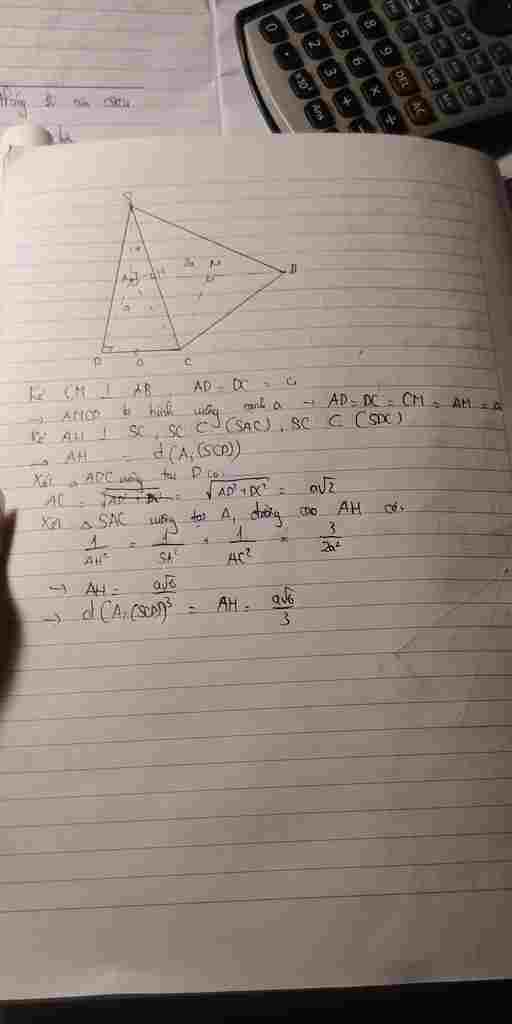 0
1
2
3
4
5
6
+
7
8
9
×
÷
DEL
AC
Ans
S
A
H
2a
M
B
a
D
a
C
Kẻ CM ⊥ AB AD = DC = a
→ AMCD là hình vuông cạnh a → AD = DC = CM = AM = a
Kẻ AH ⊥ SC, SC ⊂ (SAC), SC ⊂ (SDC)
→ AH = d(A,(SCD))
Xét △ ADC vuông tại D có
AC = √AD² + DC² = √AD²+DC² = a√2
Xét △ SAC vuông tại A, đường cao AH có.
1/AH² = 1/SA² + 1/AC² = 3/2a²
→ AH = a√6/3
→ d(A,(SCD)) = AH = a√6/3